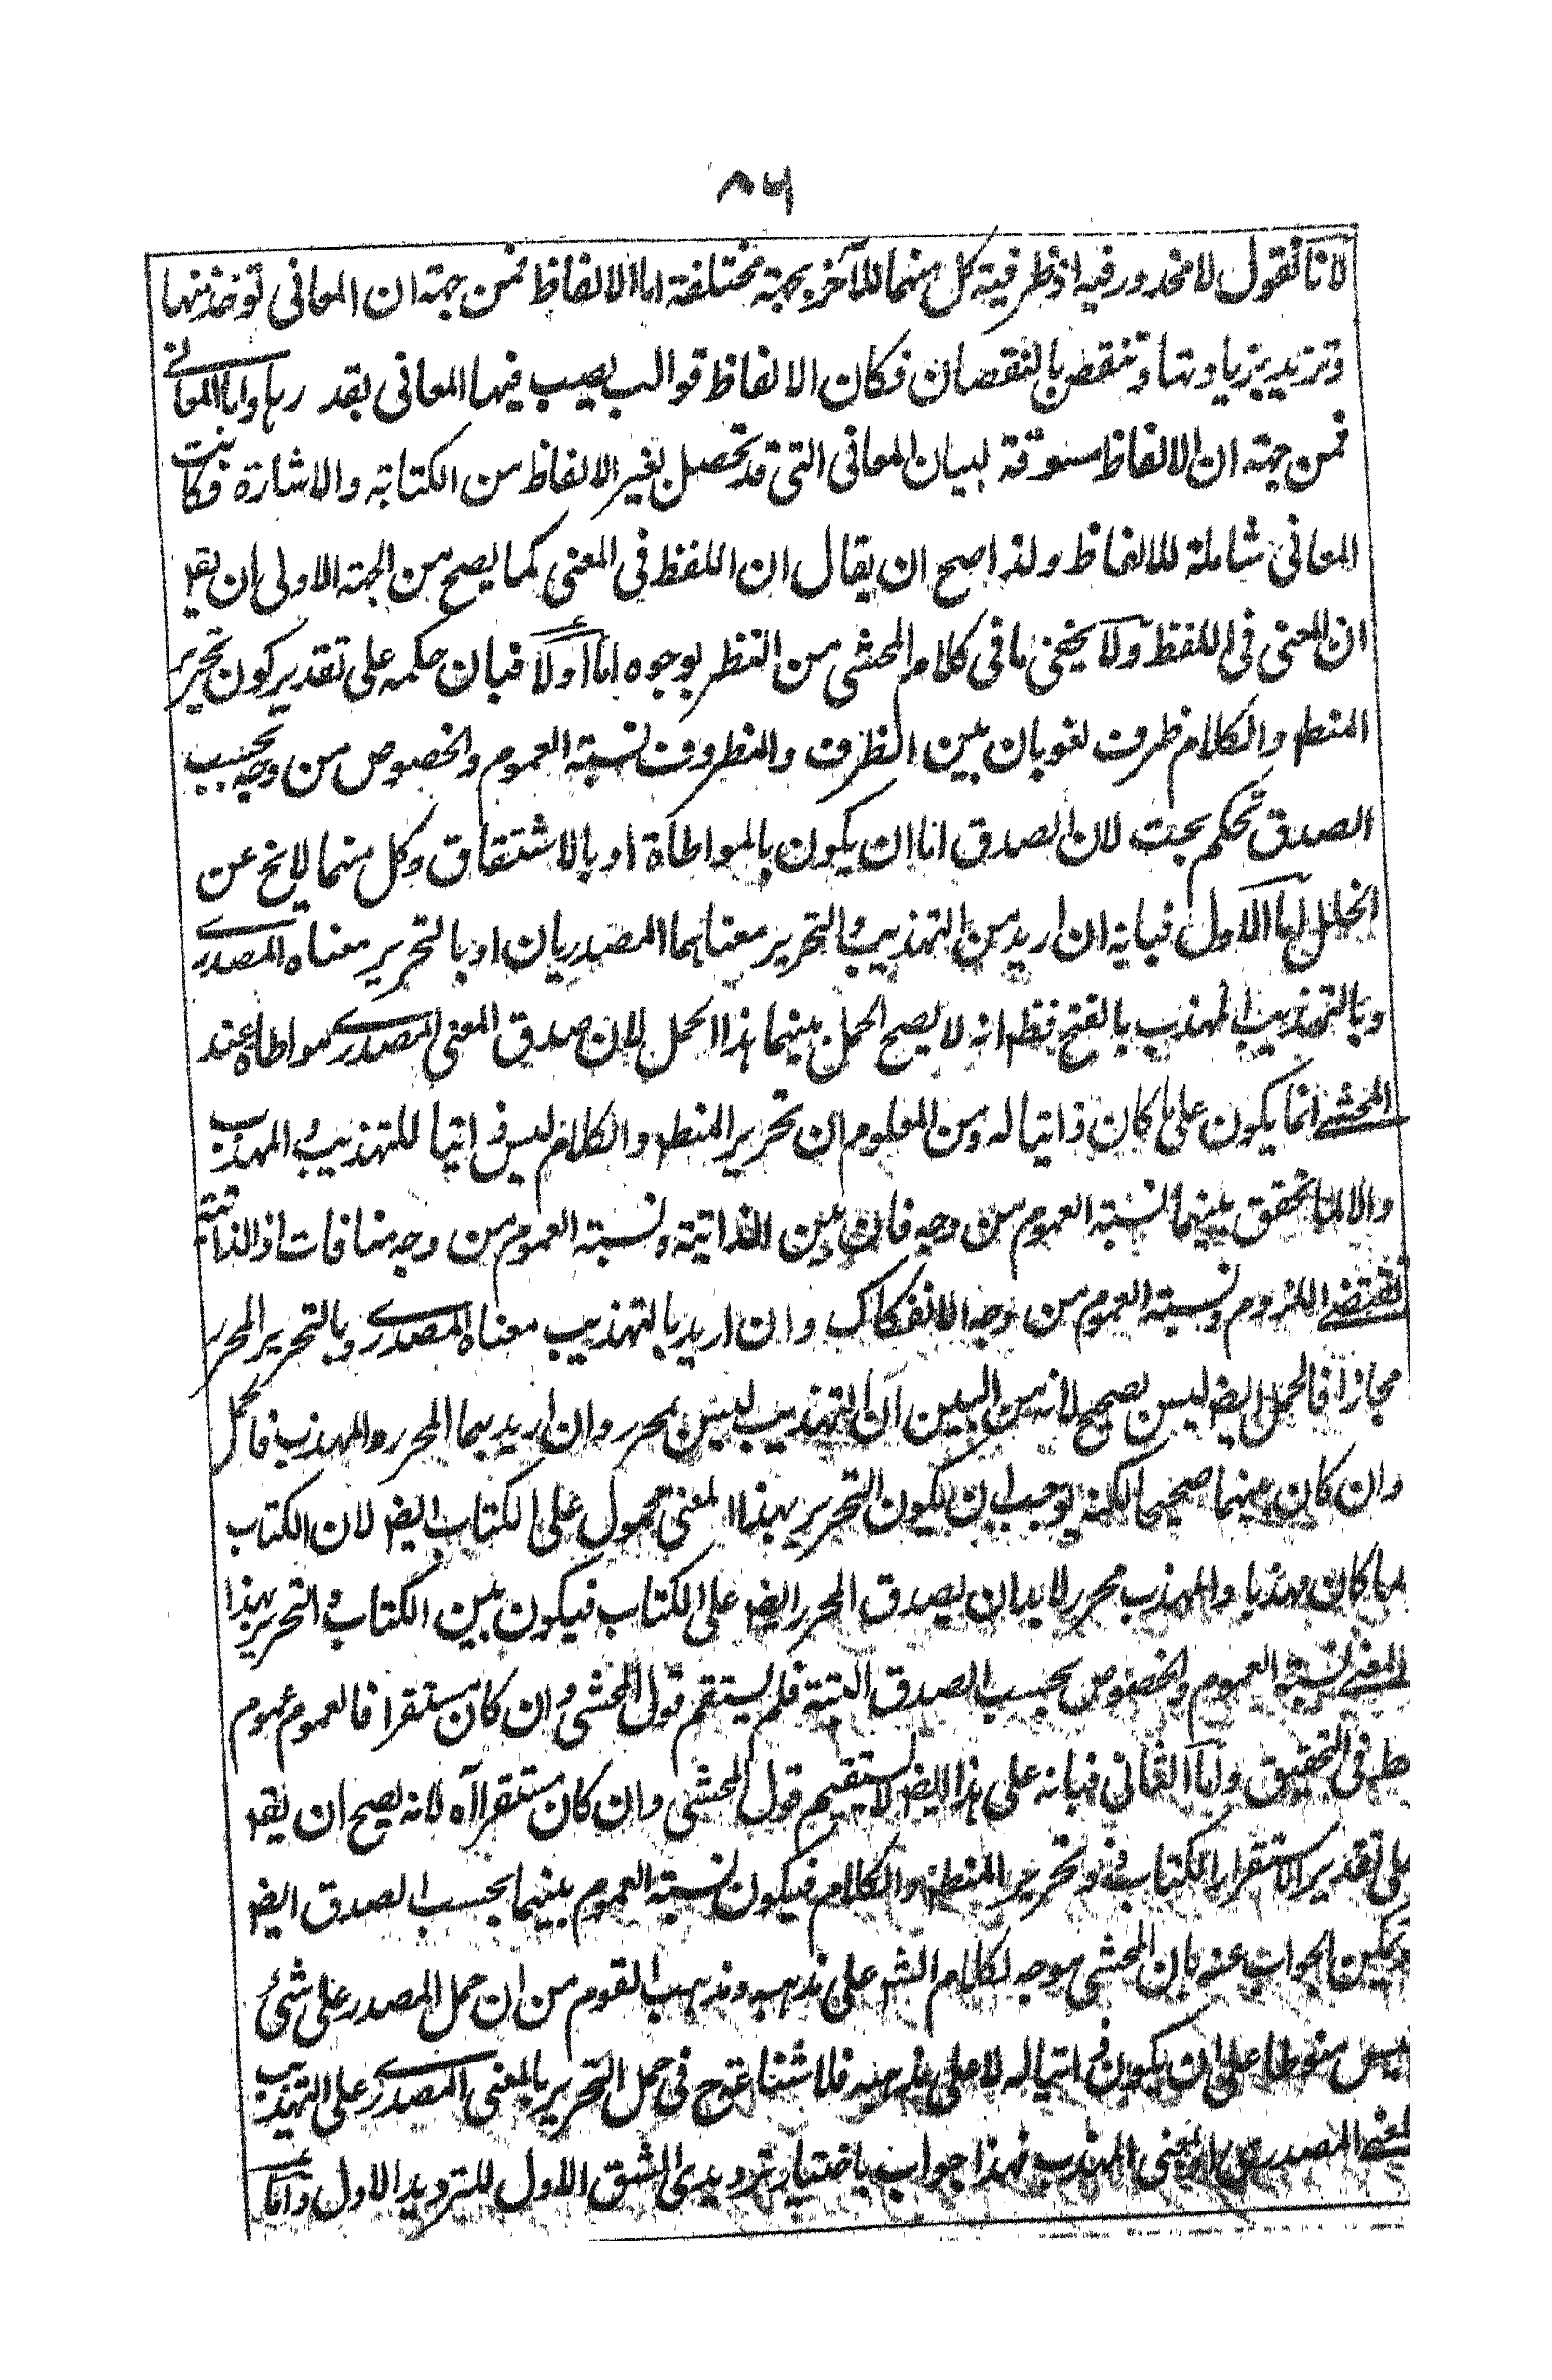 ٨٦
لانا نقول لا محذور فيه اذ ظرفية كل منهما للآخر بجهة مختلفة اما الالفاظ فمن جهة ان المعانى توخذ منها
وتزيد بزيادتها وتنقص بالنقصان فكان الالفاظ قوالب يصب فيها المعانى بقدرها واما المعانى
فمن جهة ان الالفاظ مسوقة لبيان المعانى التى قد تحصل بغير الالفاظ من الكتابة والاشارة فكانت
المعانى شاملة للالفاظ ولذا صح ان يقال ان اللفظ فى المعنى كما يصح من الجهة الاولى ان يقم
ان المعنى فى اللفظ ولا يخفى ما فى كلام المحشى من النظر بوجوه اما اولا فبان حكمه على تقدير كون تحرير
المنطم والكلام ظرف لغو بان بين الظرف والمظروف نسبة العموم والخصوص من وجه بحسب
الصدق تحكم بحت لان الصدق اما ان يكون بالمواطاة او بالاشتقاق وكل منهما لايخ عن
الخلل اما الاول فبانه ان اريد من التهذيب والتحرير معناهما المصدريان او بالتحرير معناه المصدرى
وبالتهذيب المهذب بالفتح فظم انه لا يصح الحمل بينهما هذا الحمل لان صدق المعنى المصدرى مواطاة عند
المحشى انما يكون على ما كان ذاتيا له ومن المعلوم ان تحرير المنطم والكلام ليس ذاتيا للتهذيب والمهذب
والا لما تحقق بينهما نسبة العموم من وجه فان بين الذاتية ونسبة العموم من وجه منافات اذ الذاتية
تقتضى اللزوم ونسبة العموم من وجه الانفكاك وان اريد بالتهذيب معناه المصدرى وبالتحرير المحرر
مجازا فالحمل ايضم ليس بصحيح لانه من البين ان التهذيب ليس بمحرر وان اريد بهما المحرر والمهذب فالحمل
وان كان بينهما صحيحا لكنه يوجب ان يكون التحرير بهذا المعنى محمول على الكتاب ايضم لان الكتاب
لما كان مهذبا والمهذب محرر لابد ان يصدق المحرر ايضم على الكتاب فيكون بين الكتاب والتحرير بهذا
المعنى نسبة العموم والخصوص بحسب الصدق البتة فلم يستقم قول المحشى وان كان مستقرا فالعموم عموم
فى التحقيق واما الثانى فبانه على هذا ايضم لا يستقيم قول المحشى وان كان مستقرا آه لانه يصح ان يقم
على تقدير الاستقرار الكتاب ذو تحرير المنطم والكلام فيكون نسبة العموم بينهما بحسب الصدق ايضم
ويمكن الجواب عنه بان المحشى موجه لكلام الشم على مذهبه ومذهب القوم من ان حمل المصدر على شئ
ليس منوطا على ان يكون ذاتيا له لا على مذهبه فلا شناعة فى حمل التحرير بالمعنى المصدرى على التهذيب
لمعنى المصدرى او لمعنى المهذب فهذا جواب باختيار ترديدى الشق الاول للترديد الاول واما